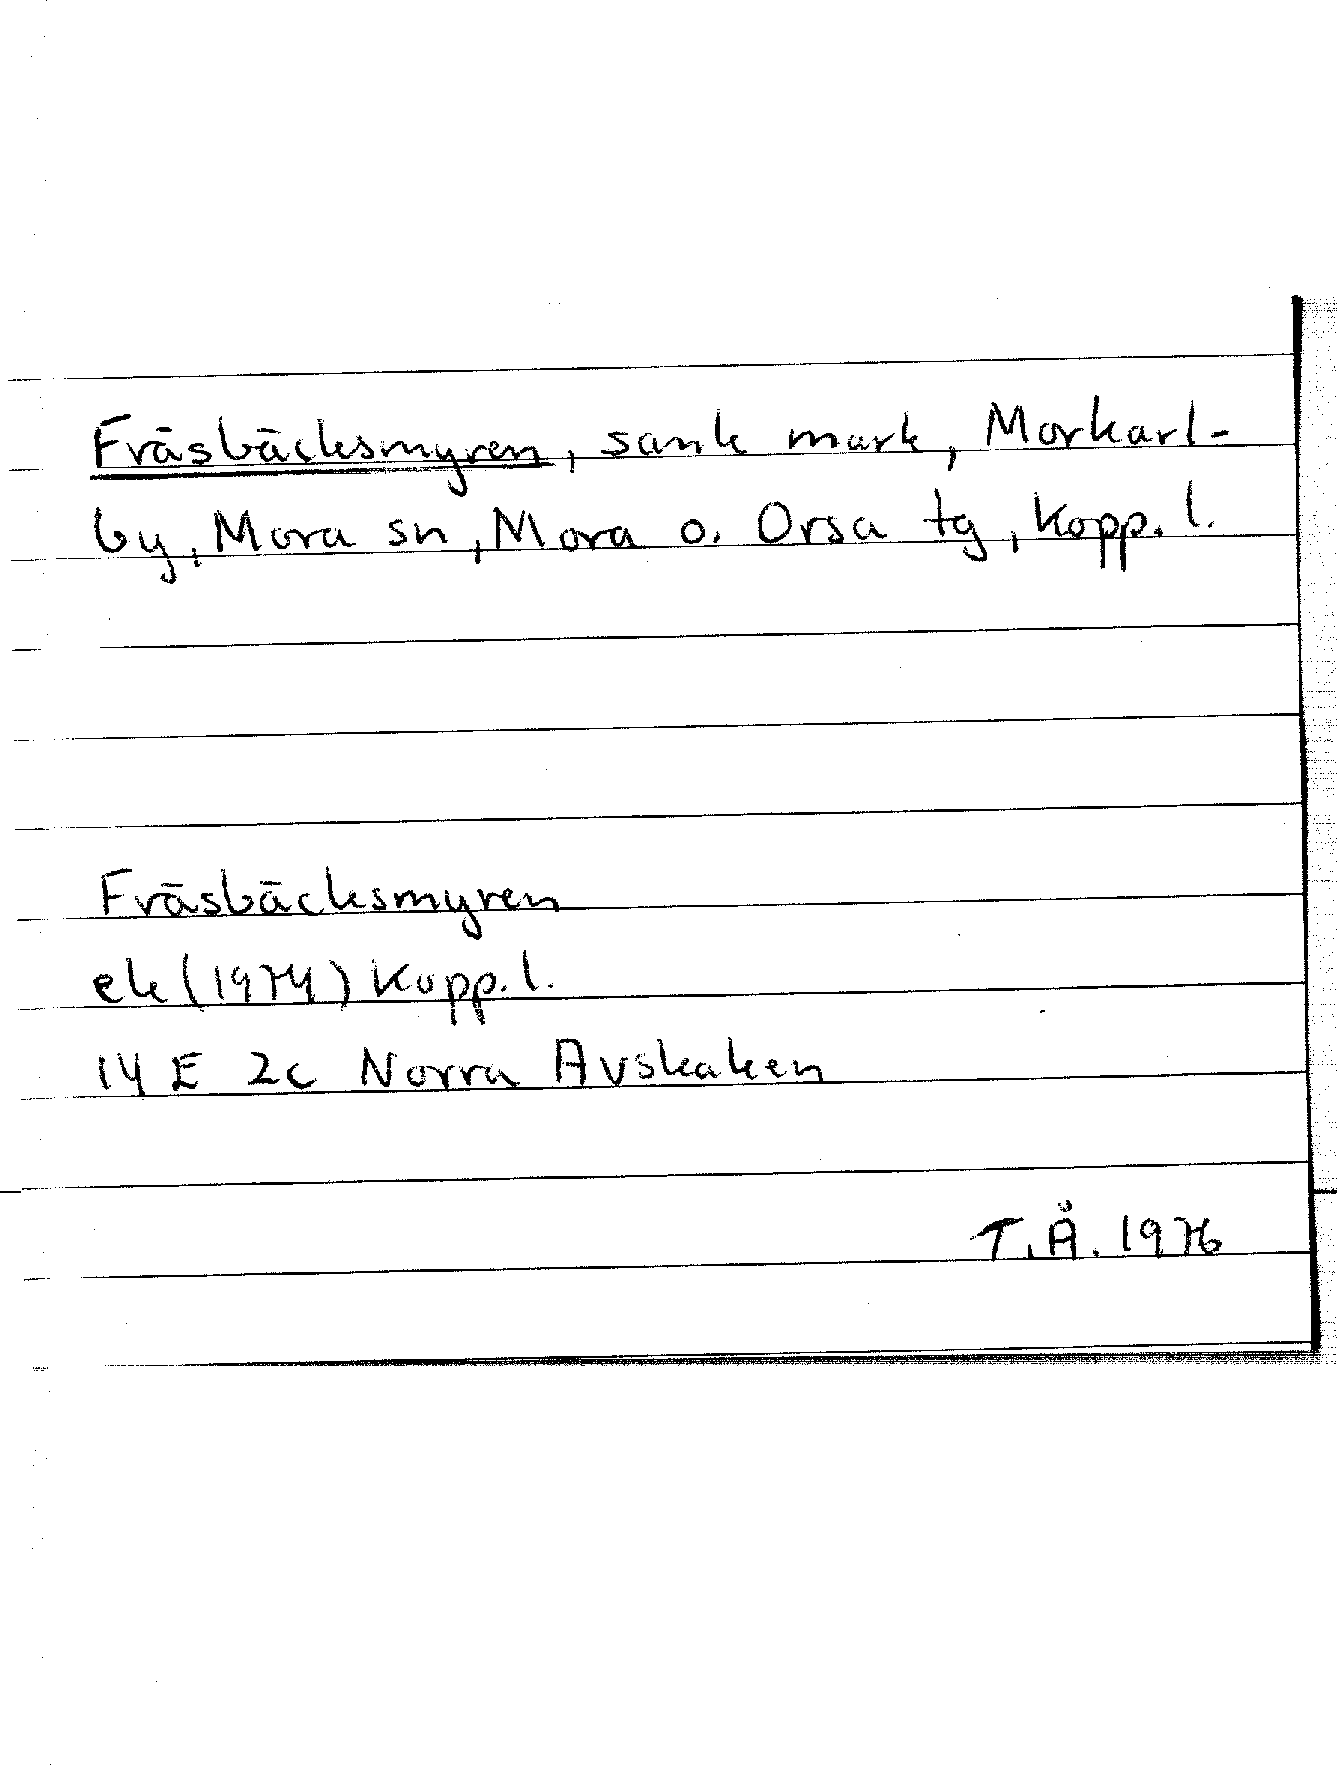 Fräsbäcksmyren, sank mark, Morkarl-
by, Mora sn, Mora o. Orsa tg, Kopp. l.
Fräsbäcksmyren
ek (1974) Kopp. l.
14 E 2c Norra Avskaken
T. Å. 1976